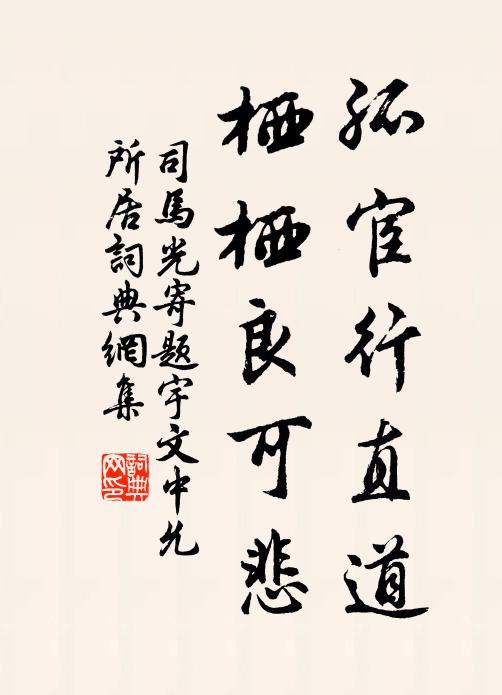 孤宦行直道
栖栖良可悲
司馬光寄題宇文中允
所居詞典網集
詞典
网印